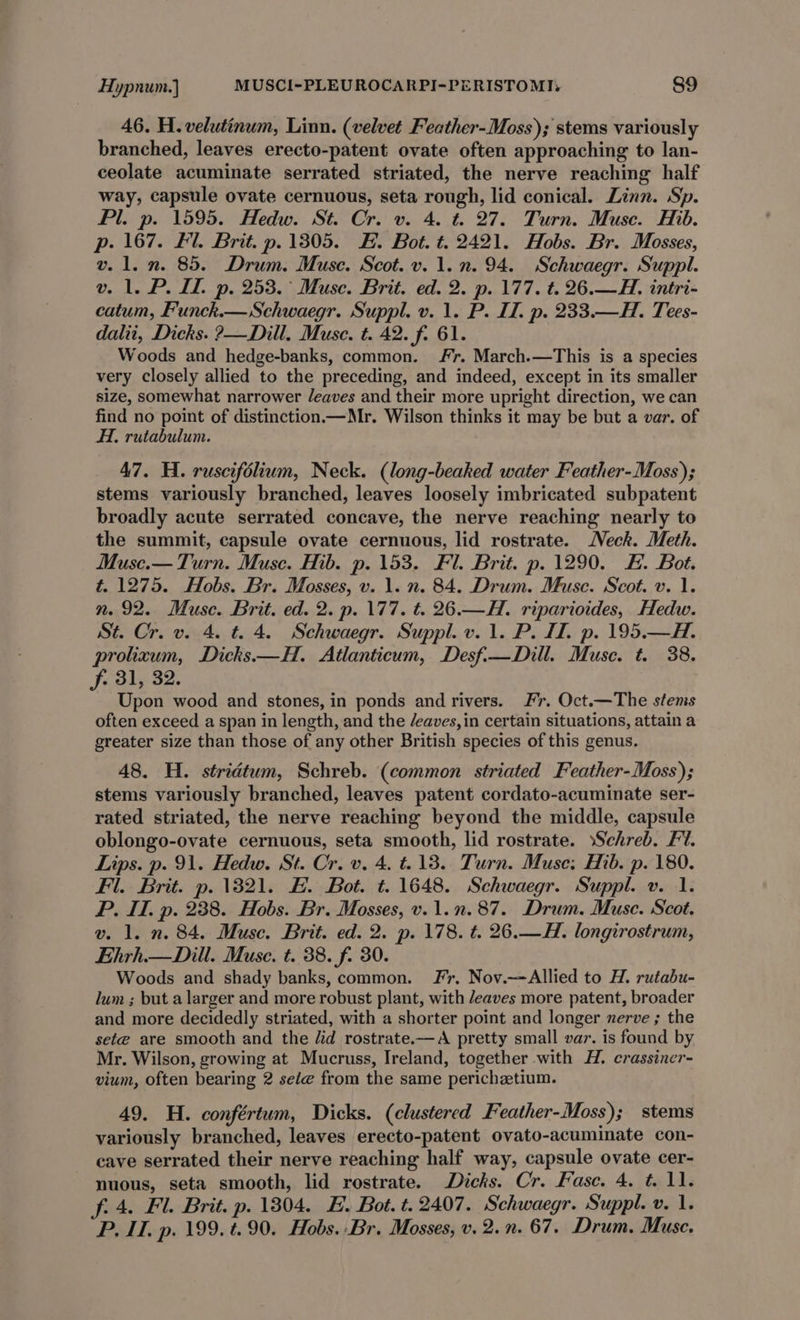 Hypnum.] MUSCI-PLEUROCARPI-PERISTOMI. 89
46. H. velutínum, Linn. (velvet Feather-Moss); stems variously
branched, leaves erecto-patent ovate often approaching to lan-
ceolate acuminate serrated striated, the nerve reaching half
way, capsule ovate cernuous, seta rough, lid conical. Linn. Sp.
Pl. p. 1595. Hedw. St. Cr. v. 4. t. 27. Turn. Musc. Hib.
p. 167. Fl. Brit. p. 1305. E. Bot. t. 2421. Hobs. Br. Mosses,
v. 1. n. 85. Drum. Musc. Scot. v. 1. n. 94. Schwaegr. Suppl.
v. 1. P. II. p. 253. Musc. Brit. ed. 2. p. 177. t. 26.—H. intri-
catum, Funck.—Schwaegr. Suppl. v. 1. P. II. p. 233.—H. Tees-
dalii, Dicks. ?—Dill. Musc. t. 42. f. 61.
Woods and hedge-banks, common. Fr. March.—This is a species
very closely allied to the preceding, and indeed, except in its smaller
size, somewhat narrower leaves and their more upright direction, we can
find no point of distinction.—Mr. Wilson thinks it may be but a var. of
H. rutabulum.
47. H. ruscifólium, Neck. (long-beaked water Feather-Moss);
stems variously branched, leaves loosely imbricated subpatent
broadly acute serrated concave, the nerve reaching nearly to
the summit, capsule ovate cernuous, lid rostrate. Neck. Meth.
Musc.—Turn. Musc. Hib. p. 153. Fl. Brit. p. 1290. E. Bot.
t. 1275. Hobs. Br. Mosses, v. 1. n. 84. Drum. Musc. Scot. v. 1.
n. 92. Musc. Brit. ed. 2. p. 177. t. 26.—H. riparioides, Hedw.
St. Cr. v. 4. t. 4. Schwaegr. Suppl. v. 1. P. II. p. 195.—H.
prolixum, Dicks.—H. Atlanticum, Desf.—Dill. Musc. t. 38.
f. 31, 32.
Upon wood and stones, in ponds and rivers. Fr. Oct.—The stems
often exceed a span in length, and the leaves, in certain situations, attain a
greater size than those of any other British species of this genus.
48. H. striátum, Schreb. (common striated Feather-Moss);
stems variously branched, leaves patent cordato-acuminate ser-
rated striated, the nerve reaching beyond the middle, capsule
oblongo-ovate cernuous, seta smooth, lid rostrate. Schreb. Fl.
Lips. p. 91. Hedw. St. Cr. v. 4. t. 13. Turn. Musc. Hib. p. 180.
Fl. Brit. p. 1321. E. Bot. t. 1648. Schwaegr. Suppl. v. 1.
P. II. p. 238. Hobs. Br. Mosses, v. 1. n. 87. Drum. Musc. Scot.
v. 1. n. 84. Musc. Brit. ed. 2. p. 178. t. 26.—H. longirostrum,
Ehrh.—Dill. Musc. t. 38. f. 30.
Woods and shady banks, common. Fr. Nov.—Allied to H. rutabu-
lum; but a larger and more robust plant, with leaves more patent, broader
and more decidedly striated, with a shorter point and longer nerve; the
setæ are smooth and the lid rostrate.—A pretty small var. is found by
Mr. Wilson, growing at Mucruss, Ireland, together with H. crassiner-
vium, often bearing 2 setæ from the same perichætium.
49. H. confértum, Dicks. (clustered Feather-Moss); stems
variously branched, leaves erecto-patent ovato-acuminate con-
cave serrated their nerve reaching half way, capsule ovate cer-
nuous, seta smooth, lid rostrate. Dicks. Cr. Fasc. 4. t. 11.
f. 4. Fl. Brit. p. 1304. E. Bot. t. 2407. Schwaegr. Suppl. v. 1.
P. II. p. 199. t. 90. Hobs. Br. Mosses, v. 2. n. 67. Drum. Musc.